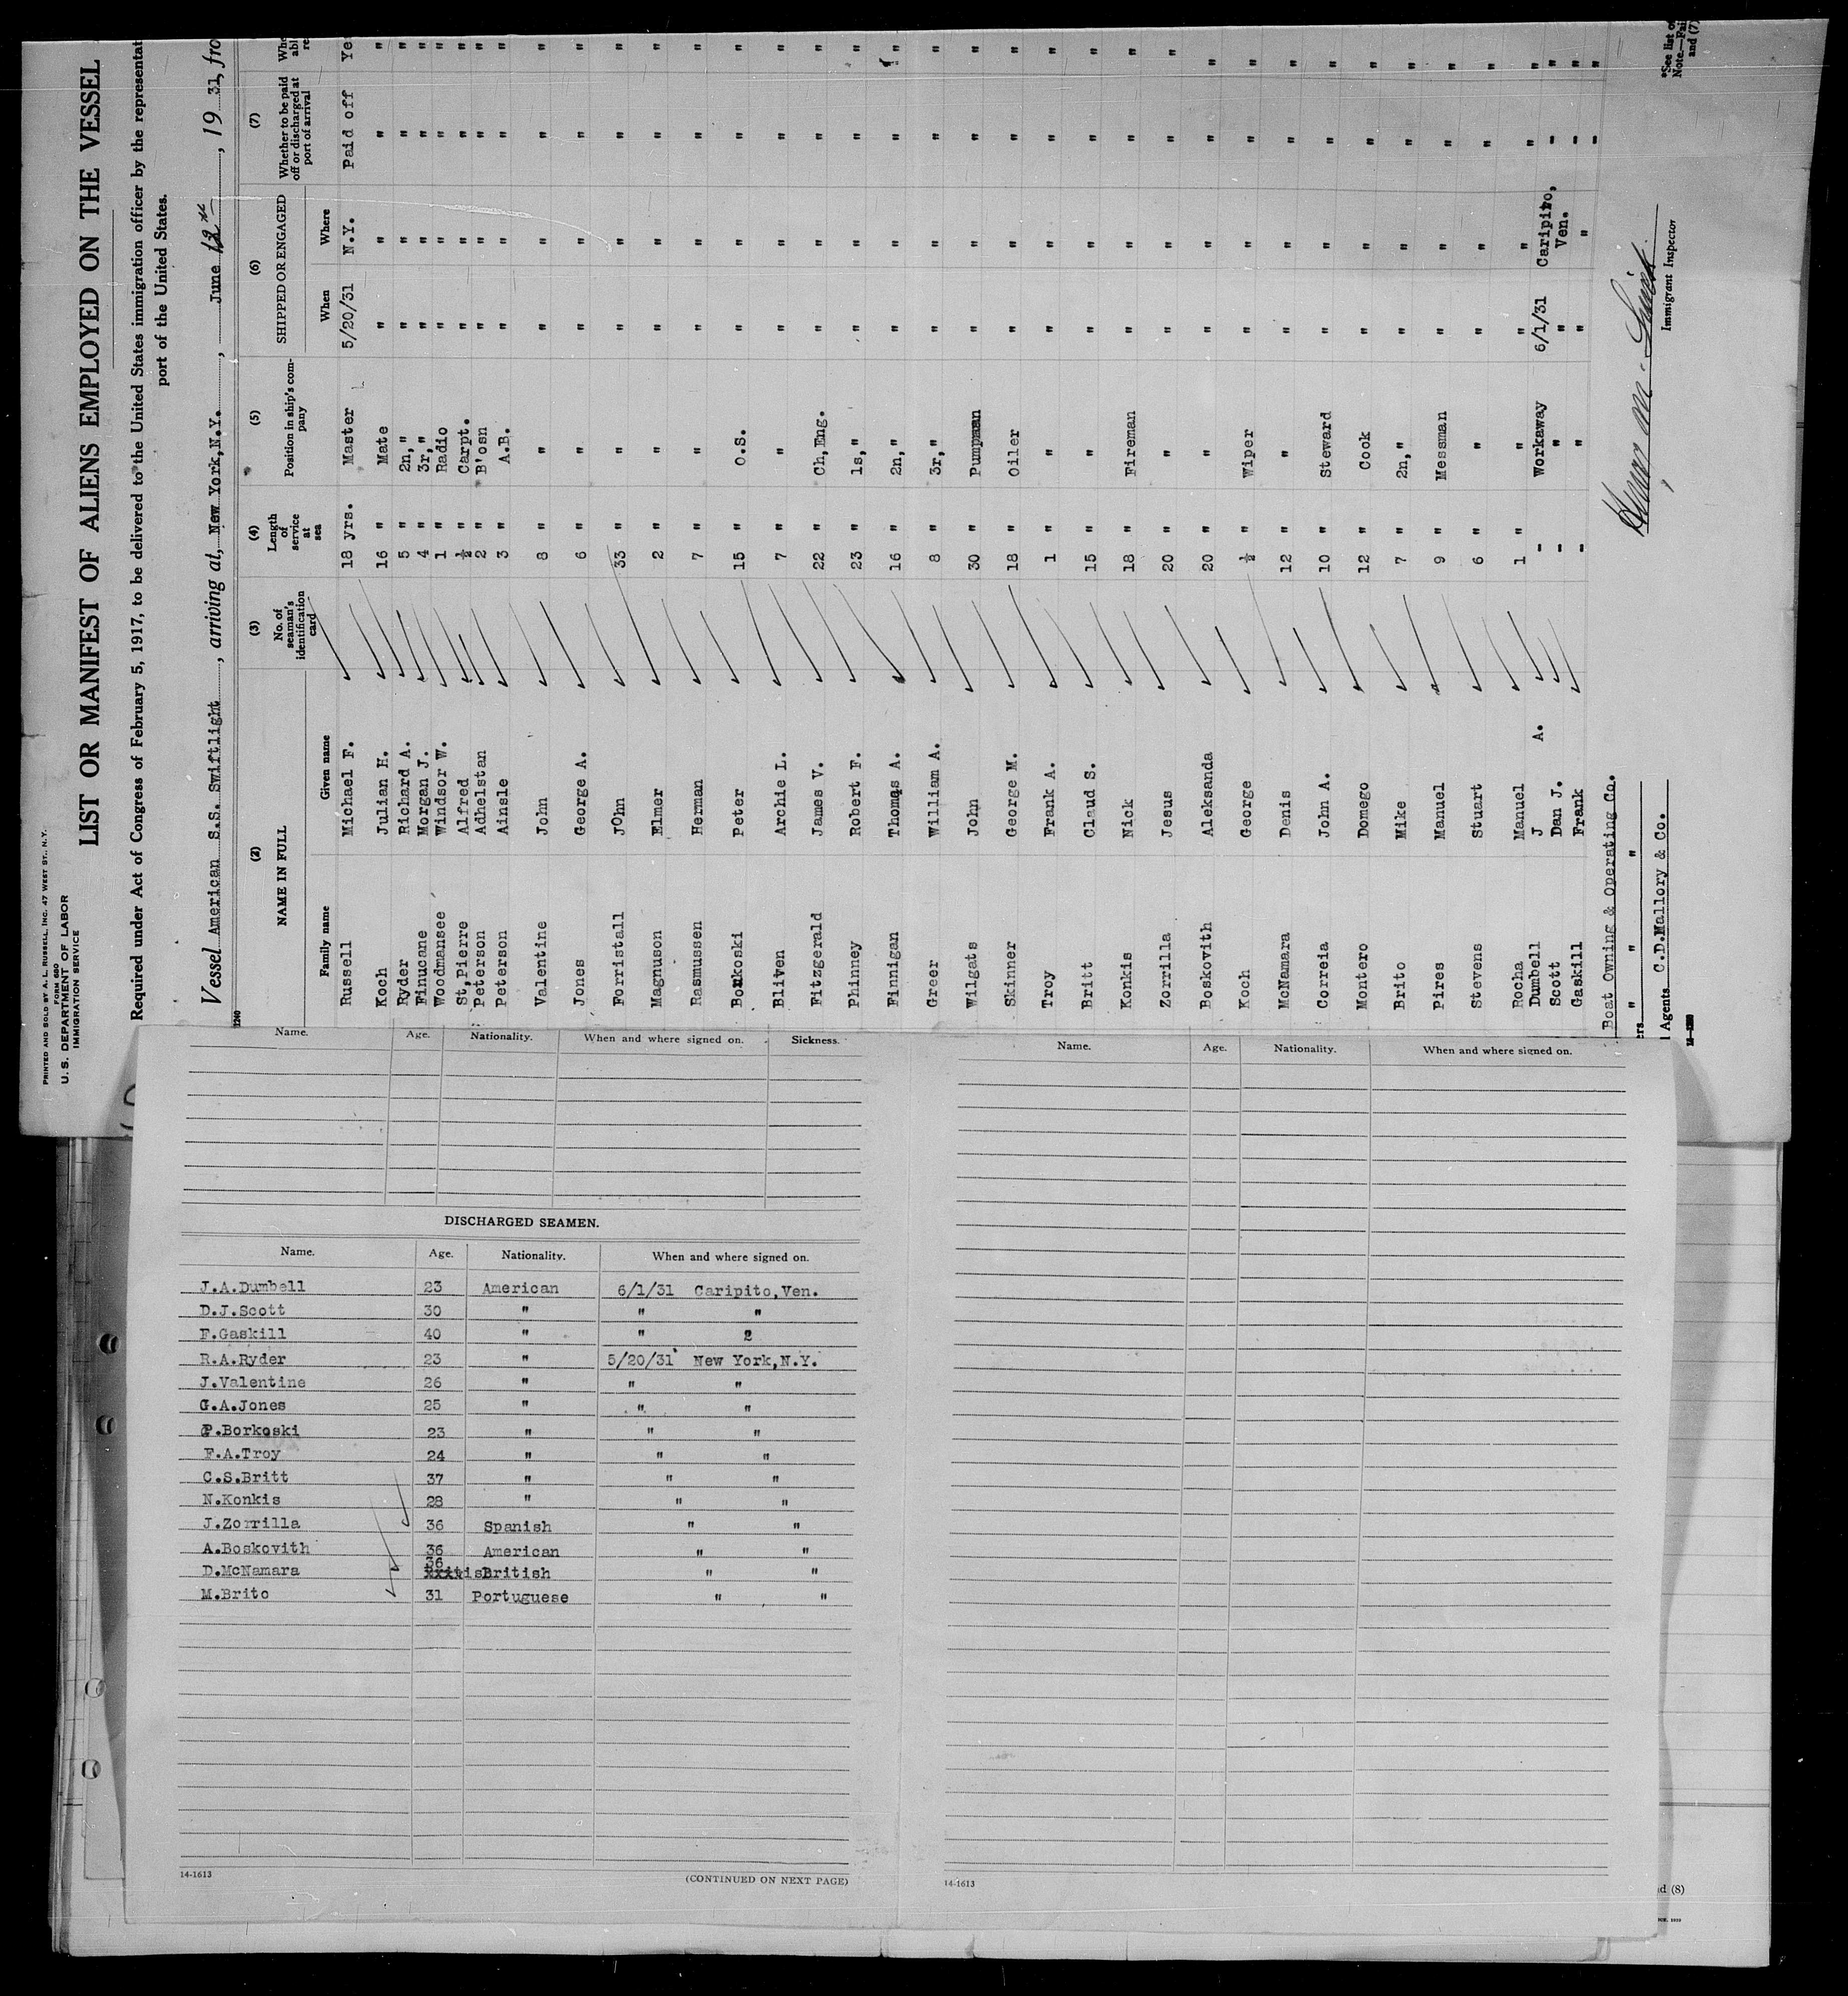 PRINTED AND SOLD BY A. L. RUSSELL, INC. 47 WEST ST., N.Y.
FORM 680
U. S. DEPARTMENT OF LABOR
IMMIGRATION SERVICE
LIST OR MANIFEST OF ALIENS EMPLOYED ON THE VESSEL
Required under Act of Congress of February 5, 1917, to be delivered to the United States immigration officer by the representat
port of the United States.
Vessel American S.S. Swiftlight, arriving at, New York, N.Y., June 12th, 1931, fro
(2) (3) (4) (5) (6) (7)
NAME IN FULL No. of seaman's identification card Length of service at sea Position in ship's company SHIPPED OR ENGAGED Whether to be paid off or discharged at port of arrival Whe
Family name Given name When Where
Russell Michael F. 18 yrs. Master 5/20/31 N.Y. Paid off Ye
Koch Julian H. 16 " Mate " " " "
Ryder Richard A. 5 " 2n," " " " "
Finucane Morgan J. 4 " 3r," " " " "
Woodmansee Windsor W. 1 " Radio " " " "
St,Pierre Alfred ½ " Carpt. " " " "
Peterson Adhelstan 2 " B'osn " " " "
Peterson Ainsle 3 " A.B. " " " "
Valentine John 8 " " " " " "
Jones George A. 6 " " " " " "
Forristall John 33 " " " " " "
Magnuson Elmer 2 " " " " " "
Rasmussen Herman 7 " " " " " "
Boukoski Peter 15 " O.S. " " " "
Bliven Archie L. 7 " " " " " "
Fitzgerald James V. 22 " Ch,Eng. " " " "
Phinney Robert F. 23 " 1s," " " " "
Finnigan Thomas A. 16 " 2n," " " " "
Greer William A. 8 " 3r," " " " "
Wilgats John 30 " Pumpman " " " "
Skinner George M. 18 " Oiler " " " "
Troy Frank A. 1 " " " " " "
Britt Claud S. 15 " " " " " "
Konkis Nick 18 " Fireman " " " "
Zorrilla Jesus 20 " " " " " "
Boskovith Aleksanda 20 " " " " " "
Koch George ½ " Wiper " " " "
McNamara Denis 12 " " " " " "
Correia John A. 10 " Steward " " " "
Montero Domego 12 " Cook " " " "
Brito Mike 7 " 2n," " " " "
Pires Manuel 9 " Messman " " " "
Stevens Stuart 6 " " " " " "
Rocha Manuel 1 " " " " " "
Dumbell J A. - Workaway 6/1/31 Caripito, Ven. - "
Scott Dan J. - " " - "
Gaskill Frank - " " " - "
Boat Owning & Operating Co.
ers " " "
l Agents C.D.Mallory & Co.
Immigrant Inspector
*See list of
Note.—Fai
and (7)
Name. Age. Nationality. When and where signed on. Sickness.
DISCHARGED SEAMEN.
Name. Age. Nationality. When and where signed on.
J.A.Dumbell 23 American 6/1/31 Caripito,Ven.
D.J.Scott 30 " " "
F.Gaskill 40 " " 2
R.A.Ryder 23 " 5/20/31 New York,N.Y.
J.Valentine 26 " " "
G.A.Jones 25 " " "
P.Borkoski 23 " " "
F.A.Troy 24 " " "
C.S.Britt 37 " " "
N.Konkis 28 " " "
J.Zorrilla 36 Spanish " "
A.Boskovith 36 American " "
D.McNamara 36 British " "
M.Brito 31 Portuguese " "
14-1613
(CONTINUED ON NEXT PAGE)
Name. Age. Nationality. When and where signed on.
14-1613
d (8)